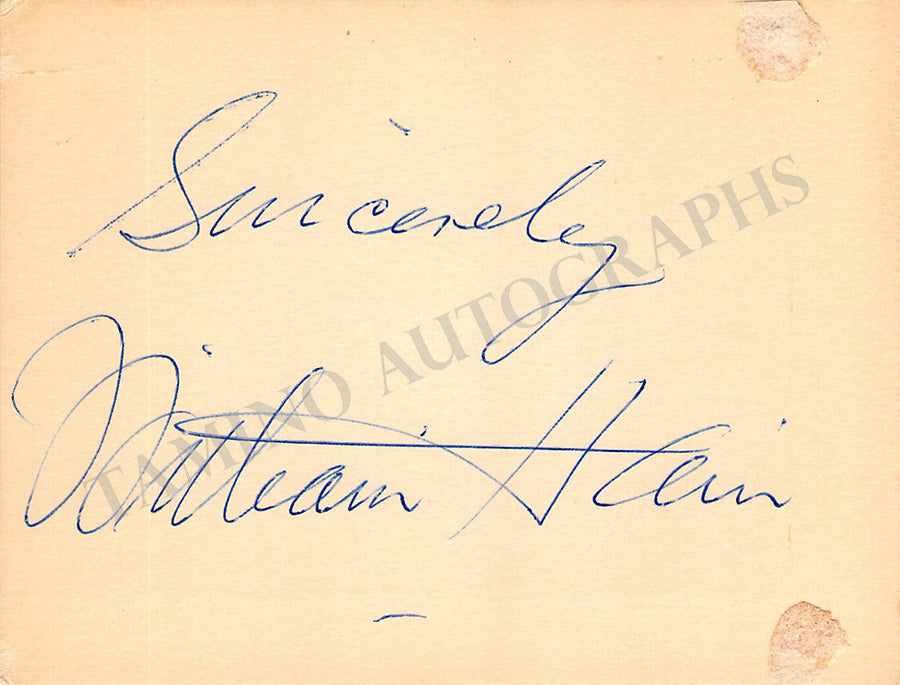 Sincerely
William Hain
TAMINO AUTOGRAPHS